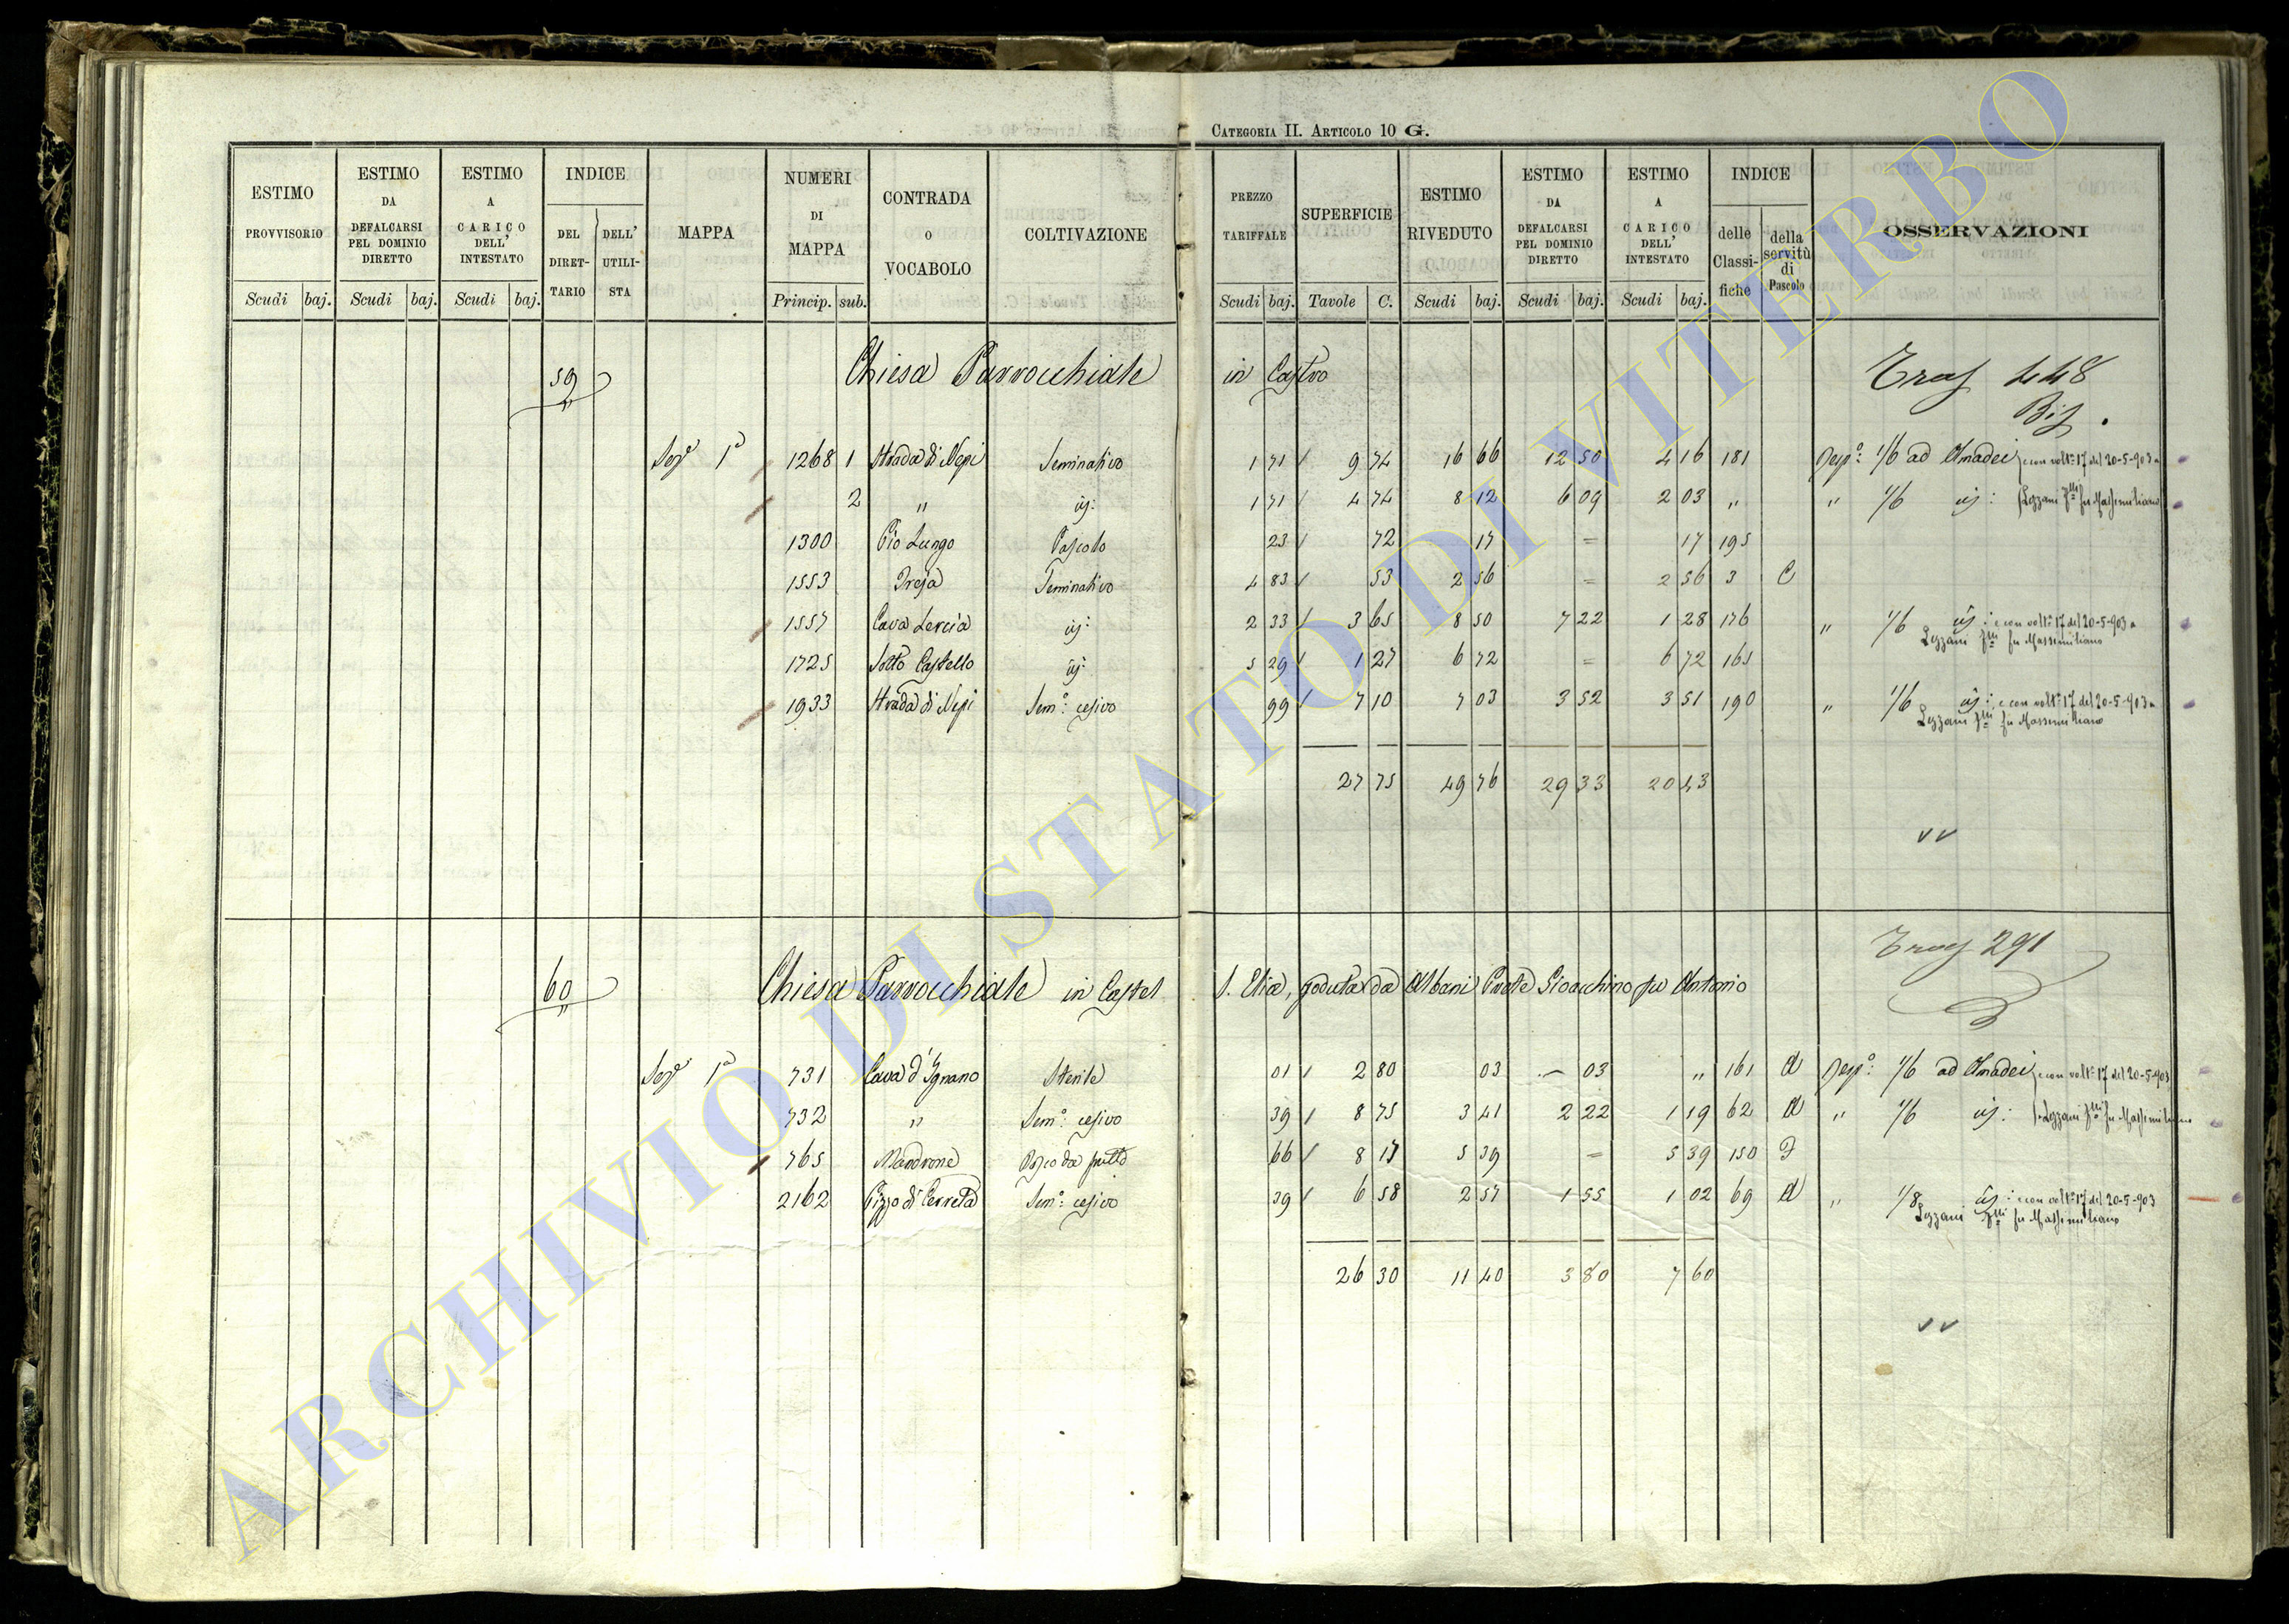 CATEGORIA II. ARTICOLO 10 G.
ESTIMO PROVVISORIO Scudi baj.
ESTIMO DA DEFALCARSI PEL DOMINIO DIRETTO Scudi baj.
ESTIMO A CARICO DELL' INTESTATO Scudi baj.
INDICE DEL DIRET-TARIO DELL' UTILI-STA
MAPPA
NUMERI DI MAPPA Princip. sub.
CONTRADA O VOCABOLO
COLTIVAZIONE
PREZZO TARIFFALE Scudi baj.
SUPERFICIE Tavole C.
ESTIMO RIVEDUTO Scudi baj.
ESTIMO DA DEFALCARSI PEL DOMINIO DIRETTO Scudi baj.
ESTIMO A CARICO DELL' INTESTATO Scudi baj.
INDICE delle Classi-fiche della servitù di Pascolo
OSSERVAZIONI
59 Chiesa Parrocchiale in Castro Tras 448
Bis.
Sez.e 1a 1268 1 Strada di Nepi Seminativo 1 71 9 74 16 66 12 50 4 16 181 Resp.o 1/6 ad Amadei e con volt.a 17 del 20-5-903 a
2 " id: 1 71 4 74 8 12 6 09 2 03 " " 1/6 id: Lezzani fu Massimiliano
1300 Pio Lungo Pascolo 23 72 17 = 17 195
1553 Treja Seminativo 4 83 53 2 56 = 2 56 3 C
1557 Cava Lercia id: 2 33 3 65 8 50 7 22 1 28 176 " 1/6 id: e con volt.a 17 del 20-5-903 a
Lezzani fu Massimiliano
1725 Sotto Castello id: 5 29 1 27 6 72 = 6 72 165
1933 Strada di Nepi Sem.o cesivo 99 7 10 7 03 3 52 3 51 190 " 1/6 id: e con volt.a 17 del 20-5-903 a
Lezzani fu Massimiliano
27 75 49 76 29 33 20 43
60 Chiesa Parrocchiale in Castel S. Elia, goduta da Albani Prete Gioacchino fu Antonio Tras 291
Sez.e 1a 731 Cava d'Ignano Sterile 01 2 80 03 03 " 161 A Resp.o 1/6 ad Amadei e con volt.a 17 del 20-5-903
732 " Sem.o cesivo 39 8 75 3 41 2 22 1 19 62 A " 1/6 id: Lezzani fu Massimiliano
765 Mandrone Bosco da frutto 66 8 17 5 39 = 5 39 150
2162 Pizzo di Cerreta Sem.o cesivo 39 6 58 2 57 1 55 1 02 69 A " 1/8 id: e con volt.a 17 del 20-5-903
Lezzani fu Massimiliano
26 30 11 40 3 80 7 60
ARCHIVIO DI STATO DI VITERBO